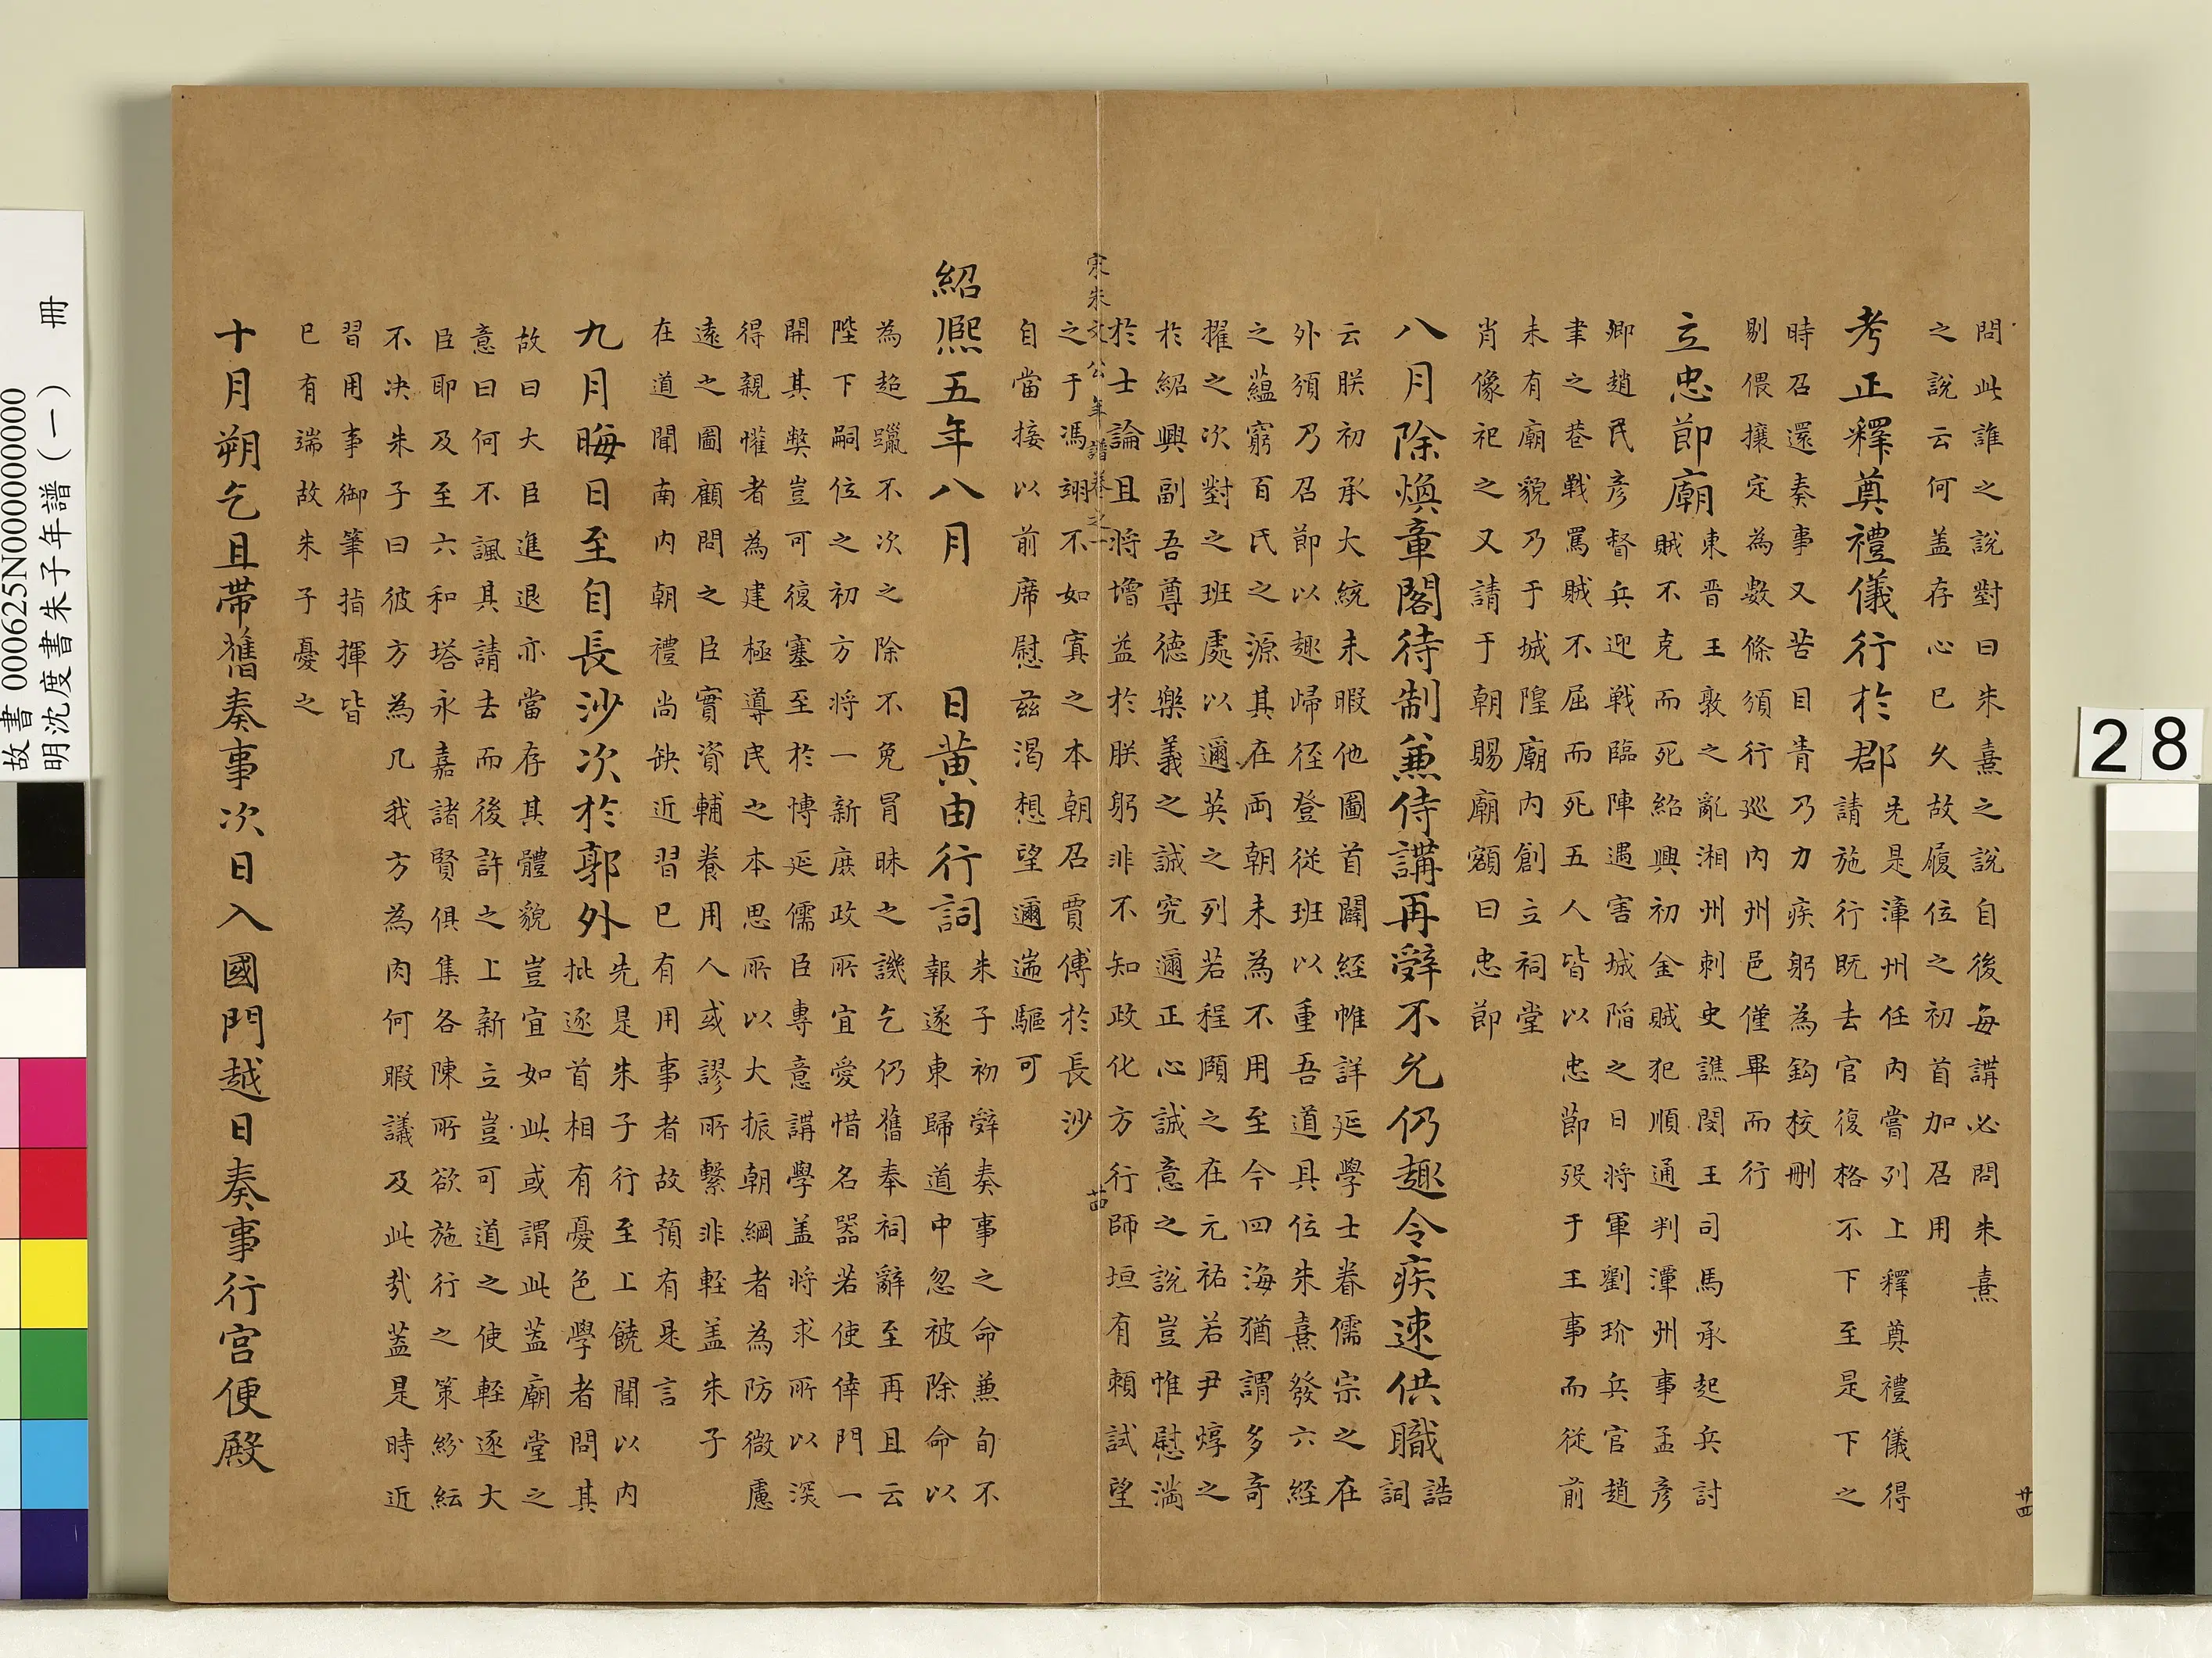 問此誰之說對曰朱熹之說自後每講必問朱熹
之說云何盖存心已久故履位之初首加召用
考正釋奠禮儀行於郡先是漳州任内嘗列上釋奠禮儀得
請施行既去官復格不下至是下之
時召還奏事又苦目眚乃力疾躬為鈎校刪
剔偎攘定為數條須行巡内州邑僅畢而行
立忠節廟東晋王敦之亂湘州刺史譙閔王司馬承起兵討
賊不克而死紹興初金賊犯順通判潭州事孟彦
卿趙民彦督兵迎戰臨陣遇害城陷之日將軍劉玠兵官趙
聿之巷戰罵賊不屈而死五人皆以忠節歿于王事而從前
未有廟貌乃于城隍廟内創立祠堂
肖像祀之又請于朝賜廟額曰忠節
八月除煥章閣待制兼侍講再辤不允仍趣令疾速供職誥
詞
云朕初承大統未暇他圖首闢経帷詳延學士眷儒宗之在
外須乃召節以趣歸徑登従班以重吾道具位朱熹發六経
之蘊窮百氏之源其在兩朝未為不用至今四海猶謂多奇
擢之次對之班處以邇英之列若程頤之在元祐若尹焞之
於紹興副吾尊德樂義之誠究邇正心誠意之説豈惟慰滿
於士論且将增益於朕躬非不知政化方行師垣有賴試望
之于馮翊不如寘之本朝召賈傅於長沙
自當接以前席慰兹渴想望邇遄驅可
宋朱文公年譜卷之一
廿四
紹熈五年八月 日黄由行詞朱子初辤奏事之命兼旬不
報遂東歸道中忽被除命以
為超躐不次之除不免冒昧之譏乞仍舊奉祠辭至再且云
陛下嗣位之初方将一新庶政所宜愛惜名器若使倖門一
開其獘豈可復塞至於博延儒臣專意講學盖将求所以深
得親懽者為建極導民之本思所以大振朝綱者為防微慮
遠之圖顧問之臣實資輔養用人或謬所繫非輕盖朱子
在道聞南内朝禮尚缺近習已有用事者故預有是言
九月晦日至自長沙次於郭外先是朱子行至上饒聞以内
批逐首相有憂色學者問其
故曰大臣進退亦當存其體貌豈宜如此或謂此葢廟堂之
意曰何不諷其請去而後許之上新立豈可道之使輕逐大
臣耶及至六和塔永嘉諸賢俱集各陳所欲施行之策紛紜
不决朱子曰彼方為几我方為肉何暇議及此㦲葢是時近
習用事御筆指揮皆
已有端故朱子憂之
十月朔乞且帶舊奏事次日入國門越日奏事行宫便殿
廿四
28
故書 000625N000000000
明沈度書朱子年譜(一) 冊